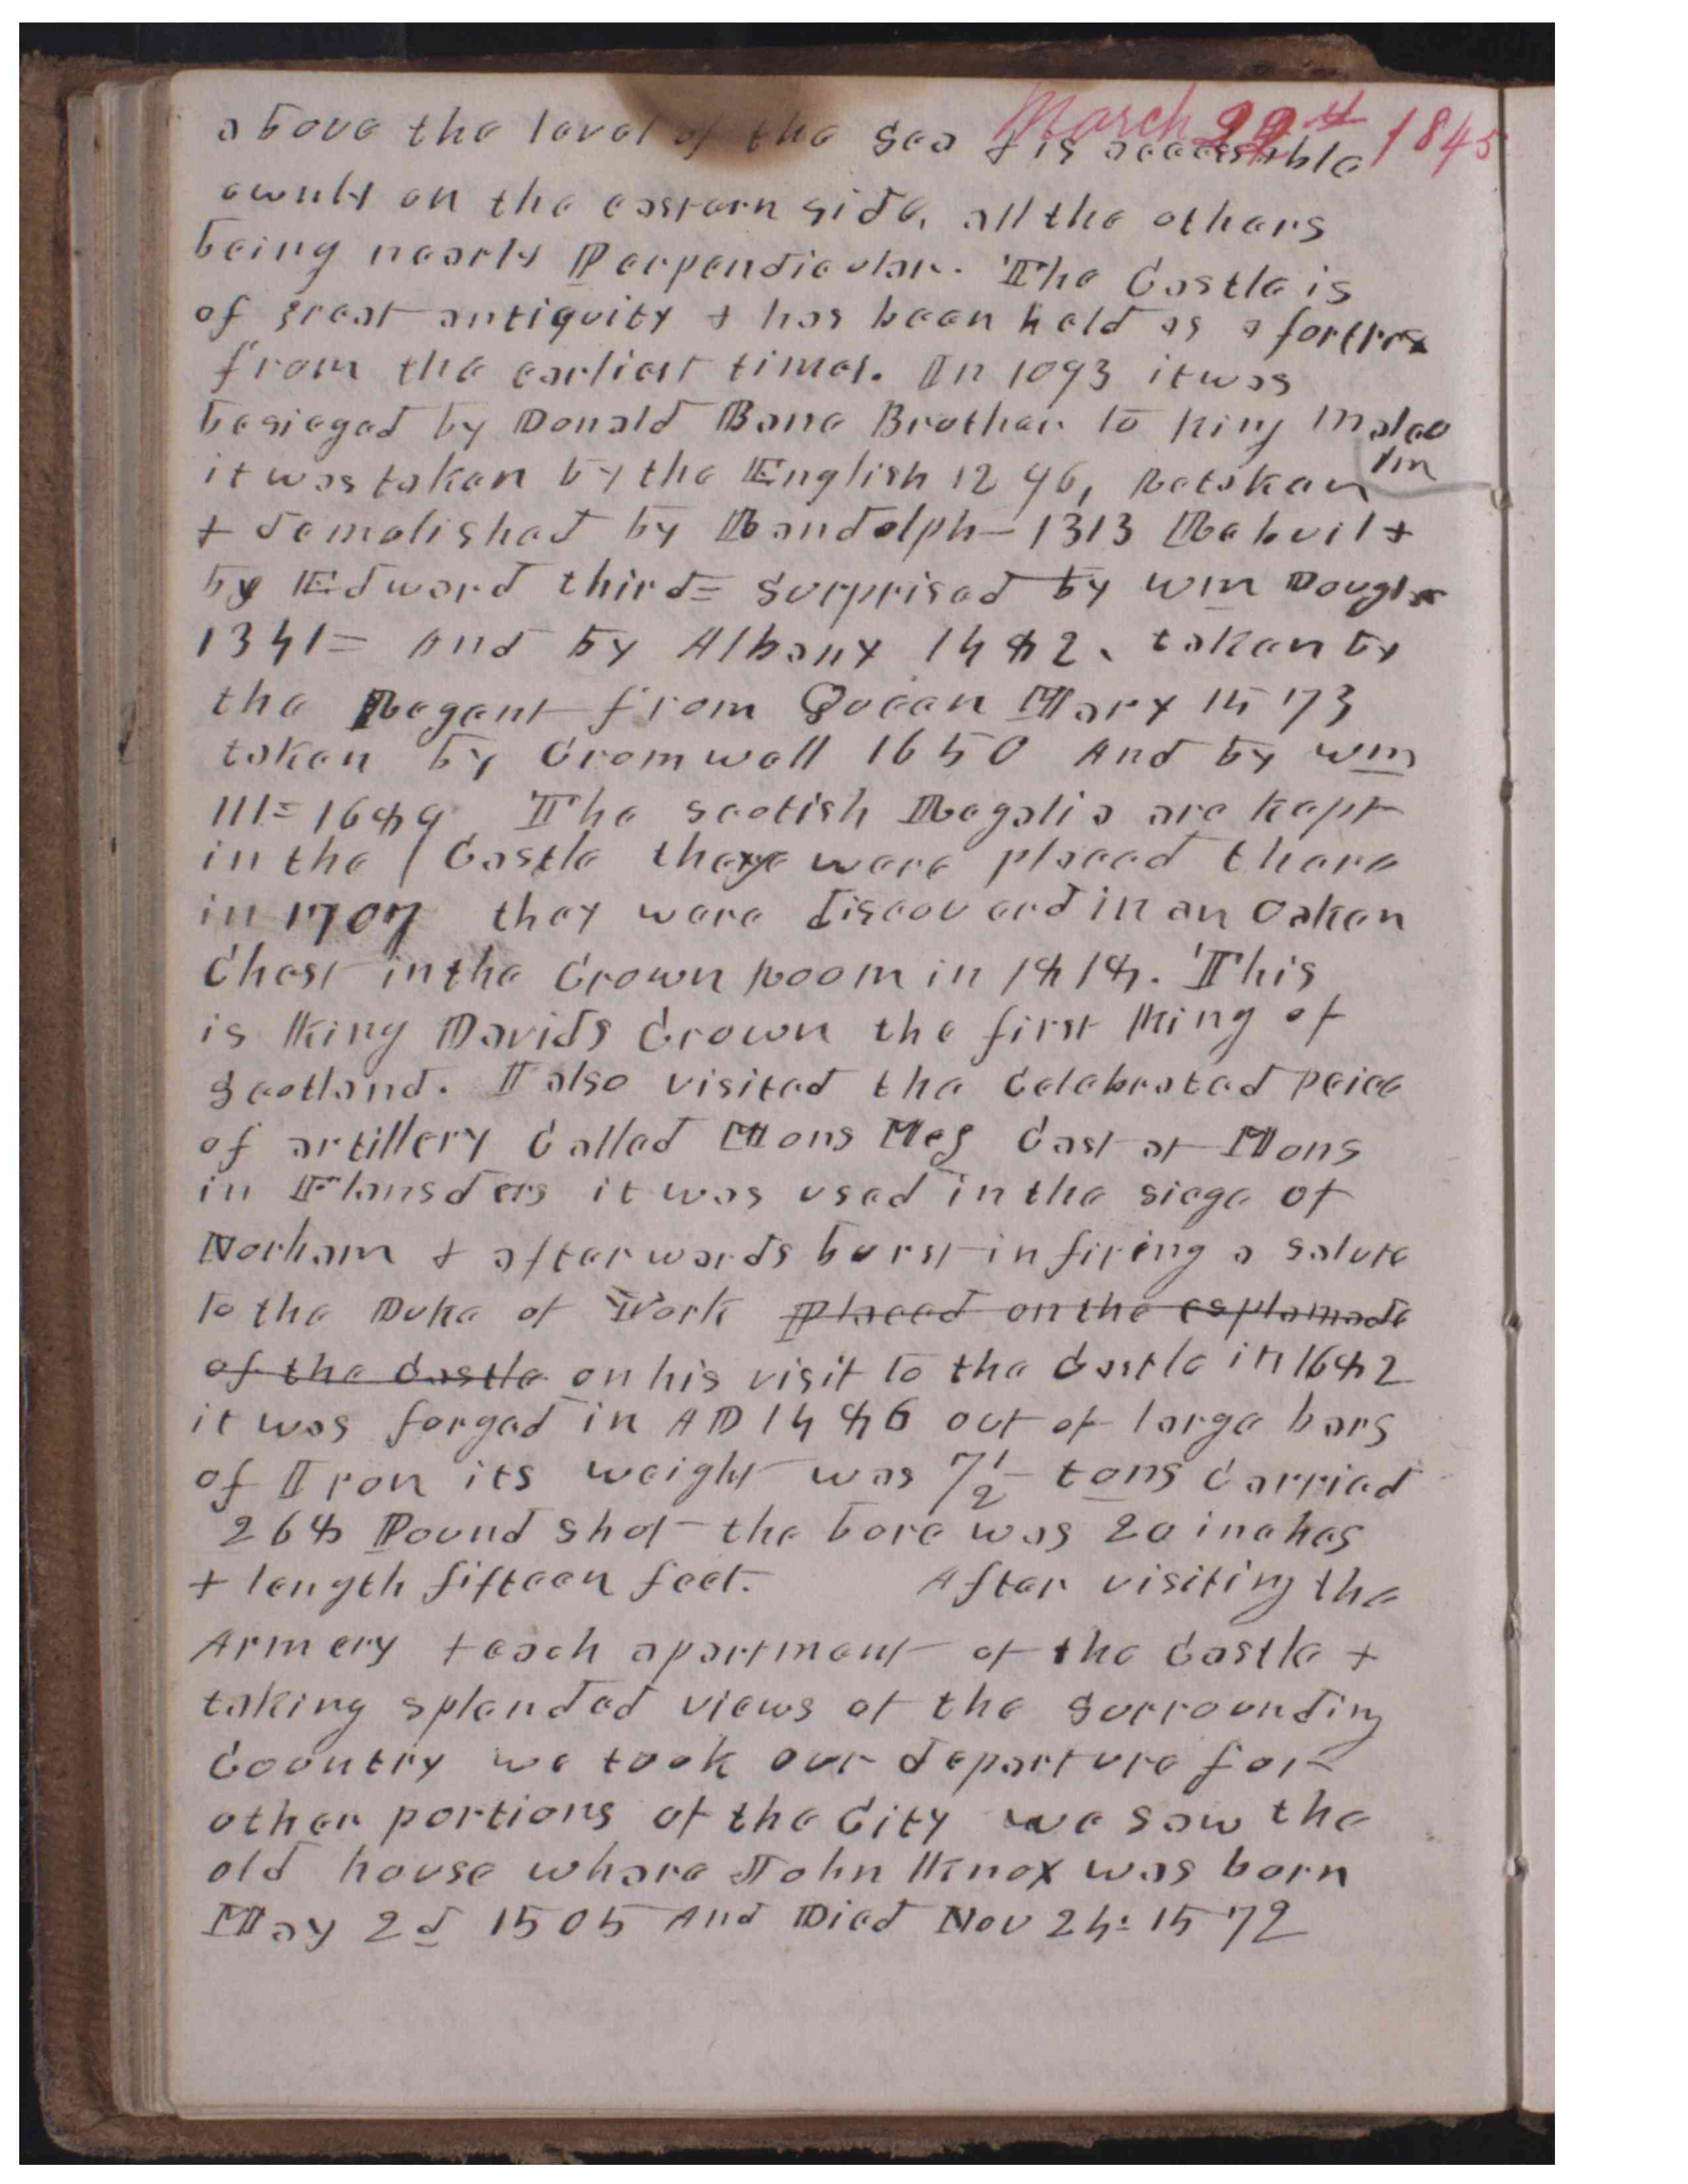 March 22d 1845
above the level of the Sea & is accessible
ownly on the eastern side, all the others
being nearly Perpendicular. The Castle is
of great antiquity & has been held as a fortress
from the earliest times. In 1093 it was
besieged by Donald Bane Brother to King Malco
lm
it was taken by the English 1296, Retaken
& demolished by Randolph 1313 Rebuilt
by Edward third= Surprised by Wm Douglas
1341= and by Albany 1482, taken by
the Regent from Queen Mary 1573
taken by Cromwell 1650 And by Wm
III= 1689 The Scotish Regalia are kept
in the Castle they were placed there
in 1707 they were discoverd in an Oaken
Chest in the Crown Room in 1818. This
is King Davids Crown the first King of
Scotland. I also visited the Celebrated peice
of artillery Called Mons Meg Cast at Mons
in Flansders it was used in the siege of
Norham & afterwards burst in firing a salute
to the Duke of York Placed on the esplamade
of the Castle on his visit to the Castle in 1682
it was forged in AD 1486 out of large bars
of Iron its weight was 7 1/2 tons Carried
268 Pound shot the bore was 20 inches
& length fifteen feet. After visiting the
Armery & each apartment of the Castle &
taking splended views of the Surrounding
Country we took our departure for
other portions of the City we saw the
old house where John Knox was born
May 2d 1505 And Died Nov 24: 1572